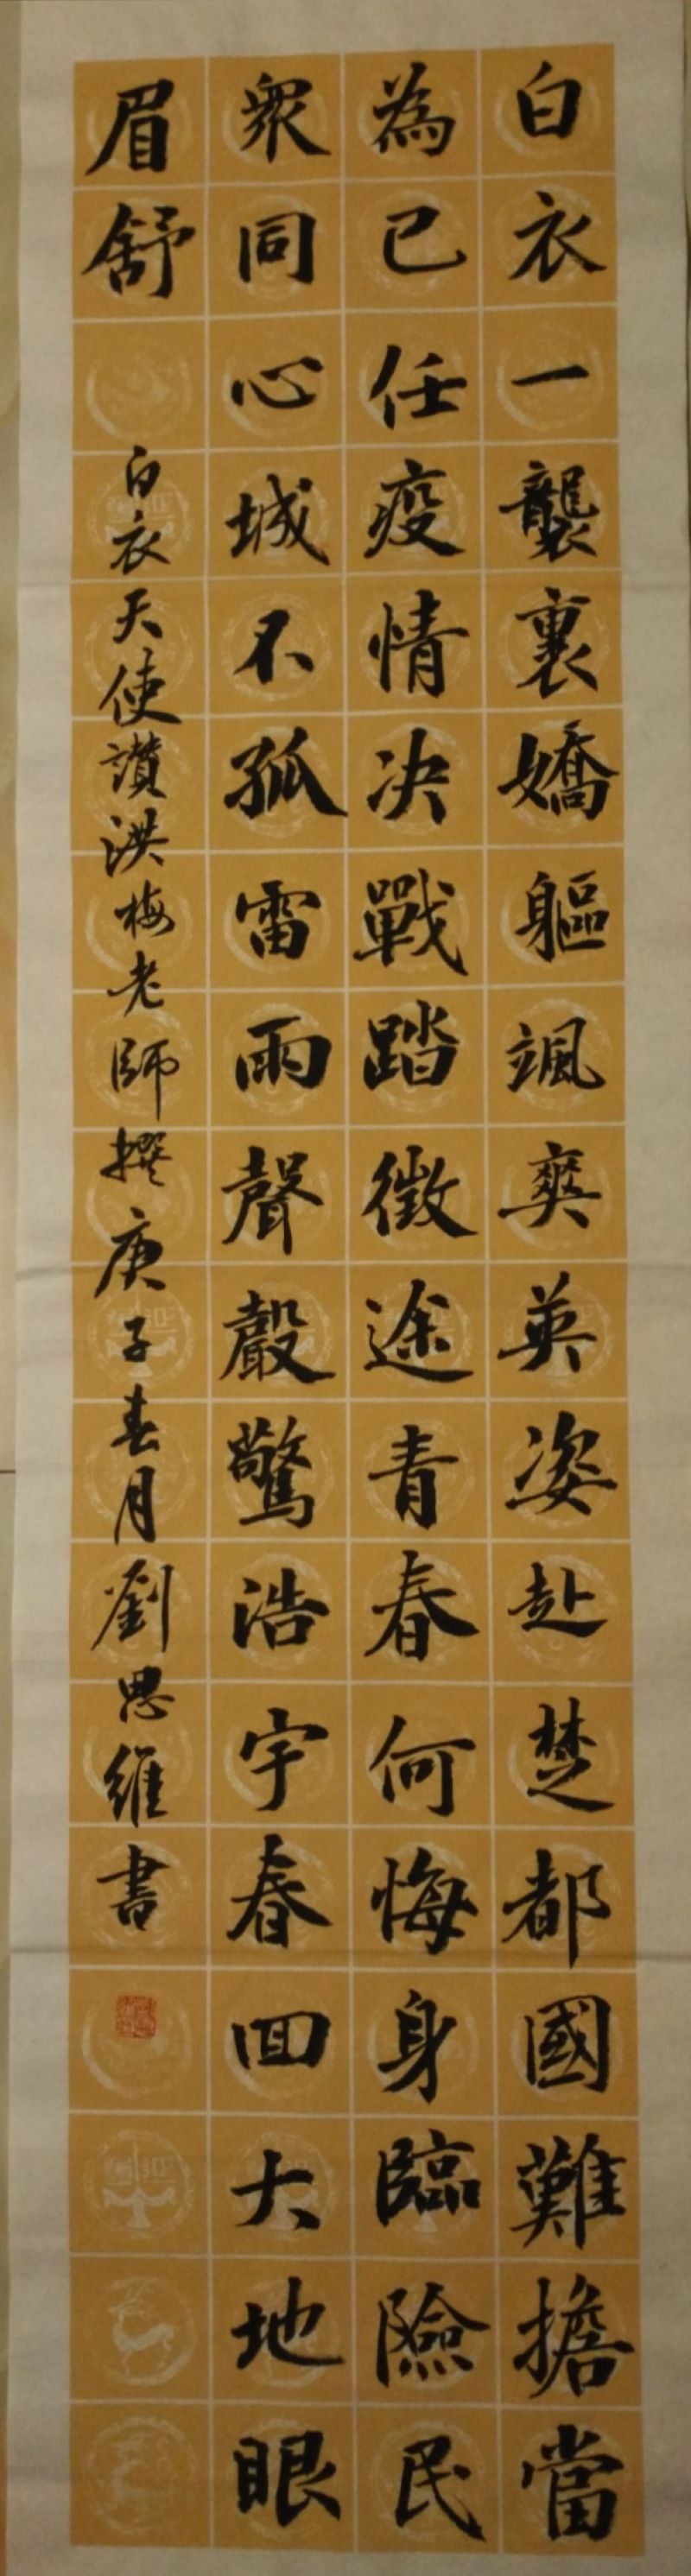 白衣一襲裏嬌軀颯爽英姿赴楚都國難擔當
為已任疫情决戰踏徵途青春何悔身臨險民
衆同心城不孤雷雨聲聲驚浩宇春回大地眼
眉舒
白衣天使讚洪梅老師撰庚子春月劉思維書